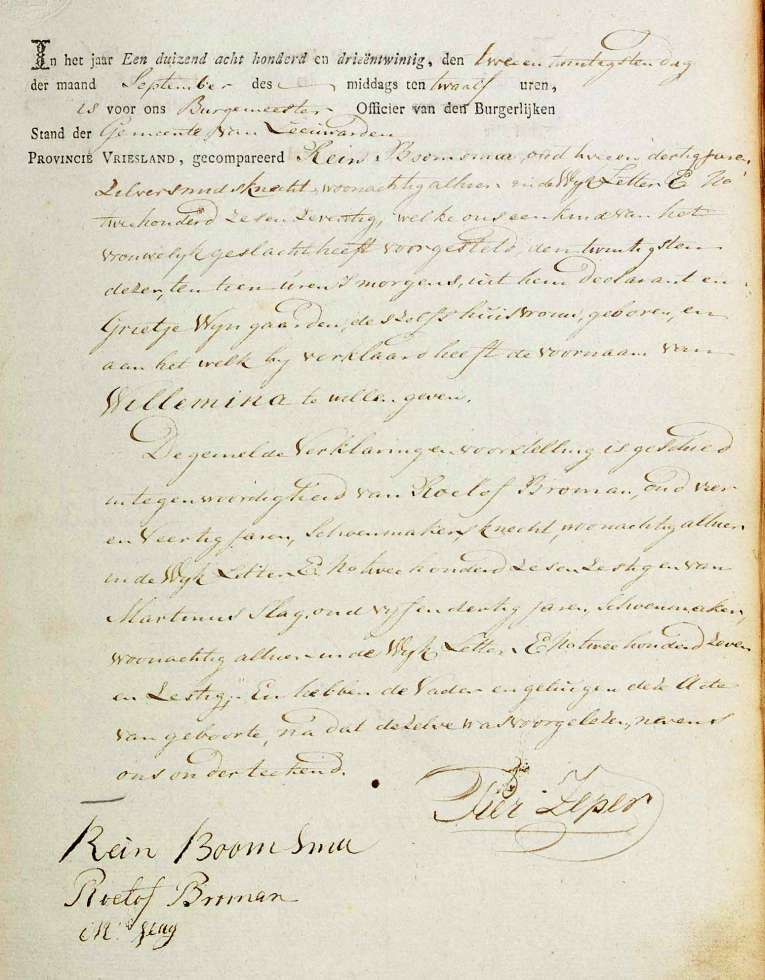 In het jaar Een duizend acht honderd en drieëntwintig, den twee en twintigsten dag
der maand September des middags ten twaalf uren,
is voor ons Burgemeester Officier van den Burgerlijken
Stand der Gemeente van Leeuwarden
PROVINCIE VRIESLAND, gecompareerd Rein Boomsma, oud twee en dertig jaren
Zilversmidsknecht, woonachtig alhier in de Wyk Letter E No
twee honderd zes en zeventig, welke ons een kind van het
vrouwelyk geslacht heeft voorgesteld, den twintigsten
dezer, ten tien uren 's morgens, uit hem Declarant en
Grietje Wyngaarden, deszelfs huisvrouw, geboren, en
aan het welk hy verklaard heeft de voornaam van
Willemina te willen geven.
De gemelde Verklaring en voorstelling is geschied
in tegenwoordigheid van Roelof Broman, oud vier
en Veertig jaren, Schoenmakersknecht, woonachtig alhier
in de Wyk Letter E No twee honderd zes en zestig en van
Martinus Slag, oud vyf en dertig jaren, Schoenmaker,
woonachtig alhier in de Wyk Letter E No twee honderd zeven
en zestig; En hebben de Vader en getuigen deze Acte
van geboorte, na dat dezelve was voorgelezen, nevens
ons onderteekend.
Pier Zeper
Rein Boomsma
Roelof Broman
Ms Slag